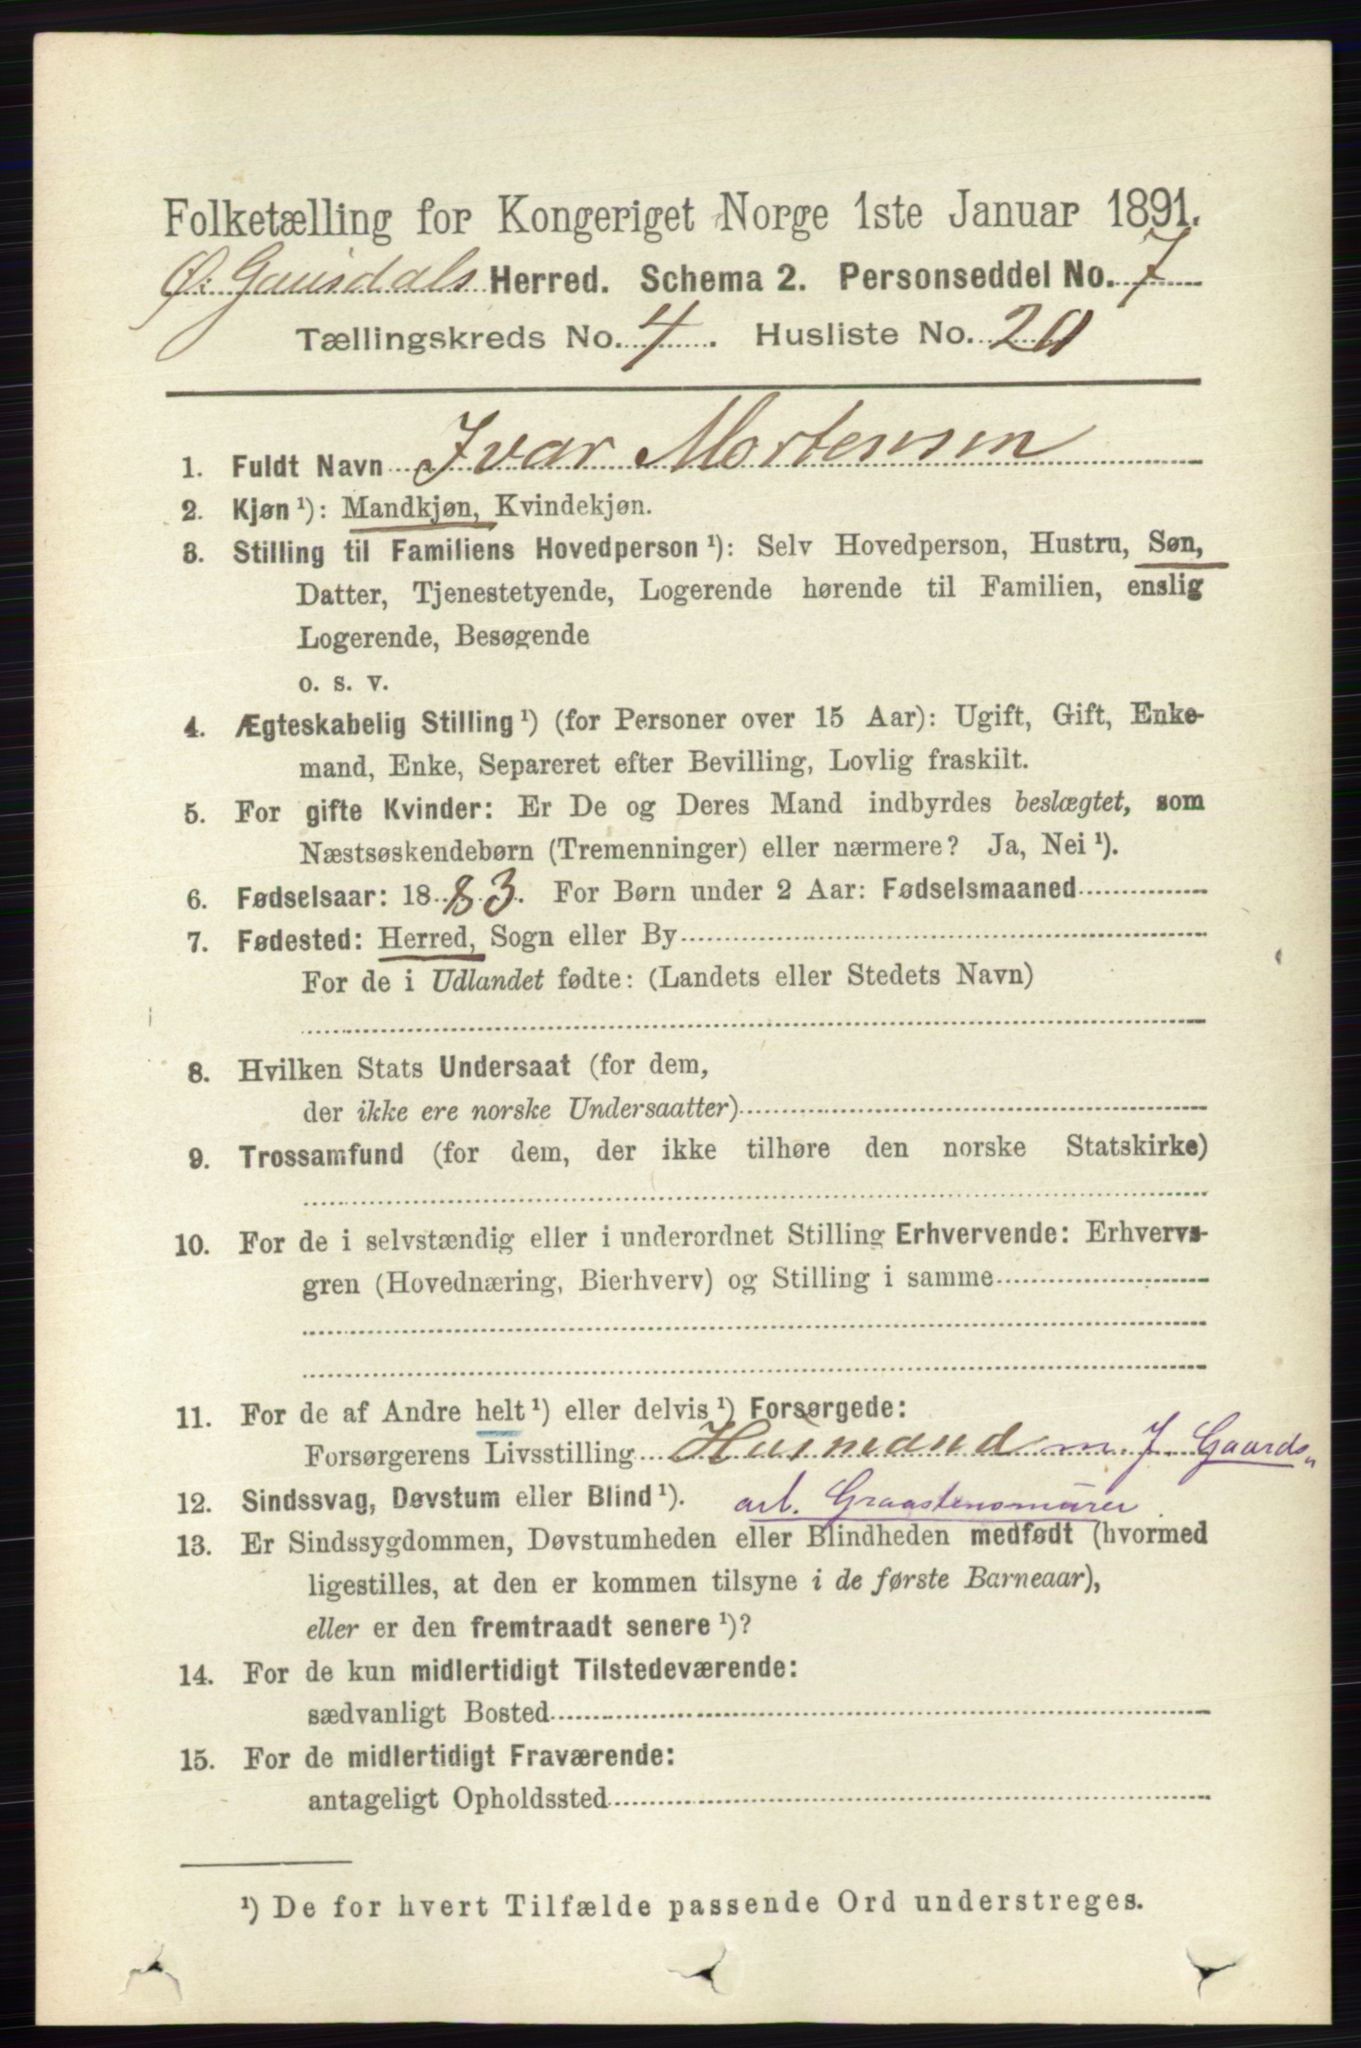 Folketælling for Kongeriget Norge 1ste Januar 1891.
Ø. Gausdals Herred. Schema 2. Personseddel No. 7
Tællingskreds No. 4. Husliste No. 20
1. Fuldt Navn Ivar Mortensen
2. Kjøn ¹): Mandkjøn, Kvindekjøn.
3. Stilling til Familiens Hovedperson ¹): Selv Hovedperson, Hustru, Søn,
Datter, Tjenestetyende, Logerende hørende til Familien, enslig
Logerende, Besøgende
o. s. v.
4. Ægteskabelig Stilling ¹) (for Personer over 15 Aar): Ugift, Gift, Enke-
mand, Enke, Separeret efter Bevilling, Lovlig fraskilt.
5. For gifte Kvinder: Er De og Deres Mand indbyrdes beslægtet, som
Næstsøskendebørn (Tremenninger) eller nærmere? Ja, Nei ¹).
6. Fødselsaar: 1883. For Børn under 2 Aar: Fødselsmaaned
7. Fødested: Herred, Sogn eller By
For de i Udlandet fødte: (Landets eller Stedets Navn)
8. Hvilken Stats Undersaat (for dem,
der ikke ere norske Undersaatter)
9. Trossamfund (for dem, der ikke tilhøre den norske Statskirke)
10. For de i selvstændig eller i underordnet Stilling Erhvervende: Erhvervs-
gren (Hovednæring, Bierhverv) og Stilling i samme
11. For de af Andre helt ¹) eller delvis ¹) Forsørgede:
Forsørgerens Livsstilling Husmand m. J. Gaards„
12. Sindssvag, Døvstum eller Blind ¹). arb. Graastensmurer
13. Er Sindssygdommen, Døvstumheden eller Blindheden medfødt (hvormed
ligestilles, at den er kommen tilsyne i de første Barneaar),
eller er den fremtraadt senere ¹)?
14. For de kun midlertidigt Tilstedeværende:
sædvanligt Bosted
15. For de midlertidigt Fraværende:
antageligt Opholdssted
¹) De for hvert Tilfælde passende Ord understreges.